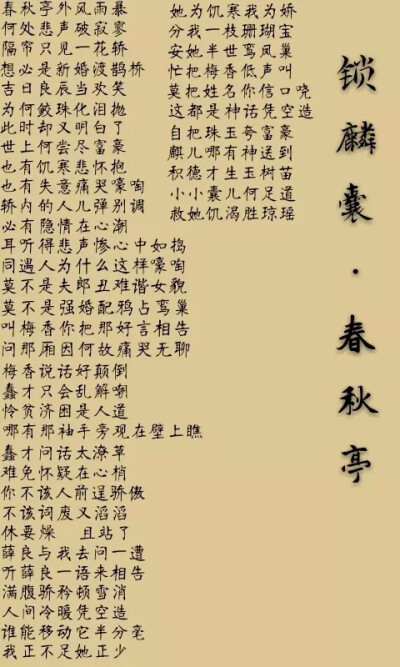 春秋亭外风雨暴
何处悲声破寂寥
隔帘只见一花轿
想必是新婚渡鹊桥
吉日良辰当欢笑
为何鲛珠化泪抛
此时却又明白了
世上何尝尽富豪
也有饥寒悲怀抱
也有失意痛哭嚎啕
轿内的人儿弹别调
必有隐情在心潮
耳听得悲声惨心中如捣
同遇人为什么这样嚎啕
莫不是夫郎丑难谐女貌
莫不是强婚配鸦占鸾巢
叫梅香你把那好言相告
问那厢因何故痛哭无聊
梅香说话好颠倒
蠢才只会乱解嘲
怜贫济困是人道
哪有那袖手旁观在壁上瞧
蠢才问话太潦草
难免怀疑在心梢
你不该人前逞骄傲
不该词废又滔滔
休要燥 且站了
薛良与我去问一遭
听薛良一语来相告
满腹骄矜顿雪消
人间冷暖凭空造
谁能移动它半分毫
我正不足她正少
她为饥寒我为娇
分我一枝珊瑚宝
安她半世鸾凤巢
忙把梅香低声叫
莫把姓名你信口哓
这都是神话凭空造
自把珠玉夸富豪
麒儿哪有神送到
积德才生玉树苗
小小囊儿何足道
救她饥渴胜琼瑶
锁麟囊·春秋亭